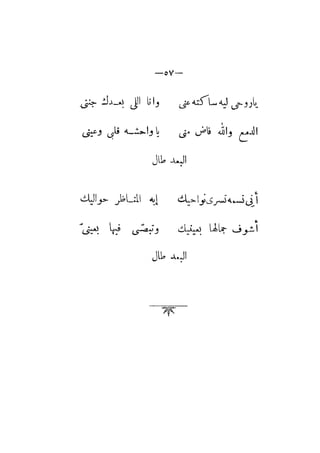 —٥٧—
ياروحى ليه ساكته عنى وانا اللى بعدك جننى
الدمع والله فاض منى ياواحشه قلبى وعينى
البعد طال
أنى نسمه تسرى نواحيك إيه المناظر حواليك
أشوف جمالها بعينيك وتبصّى فيها بعينىّ
البعد طال